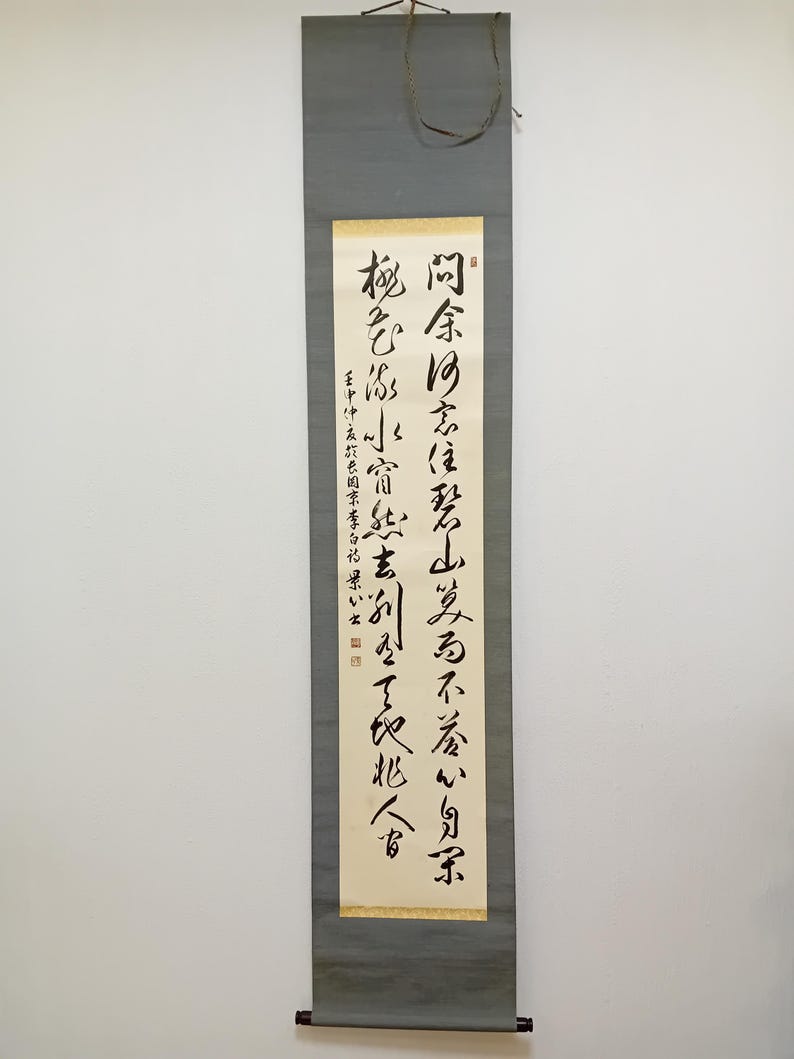 問余何意住碧山笑而不答心自閑
桃花流水窅然去別有天地非人間
壬申仲夏於長岡京李白詩景心書